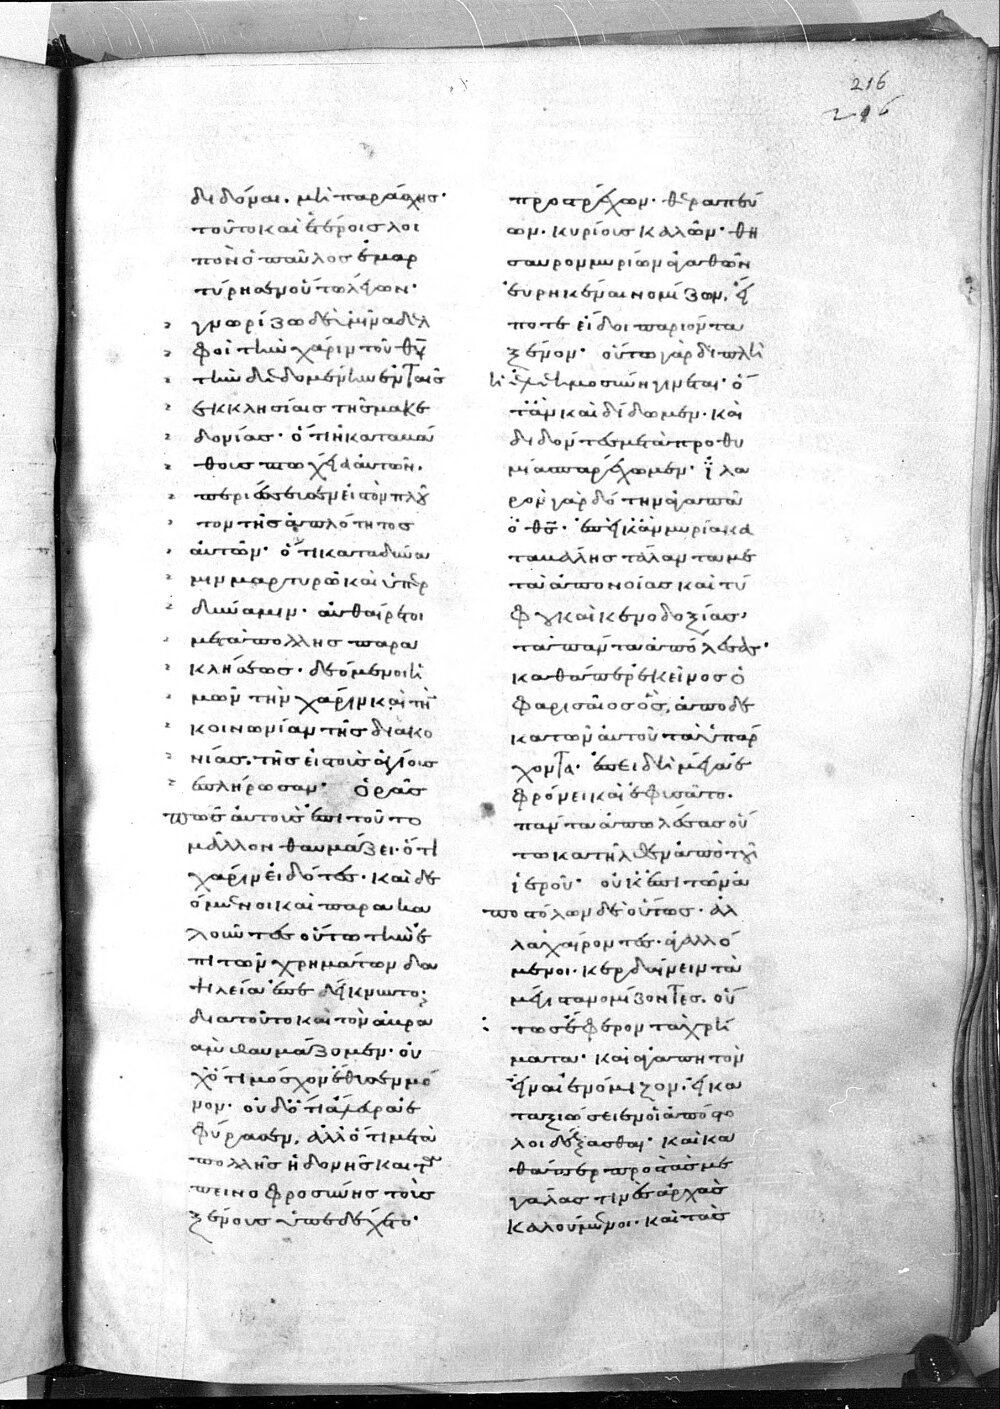 216
216
διδόναι. μὴ παράσχῃς·
τοῦτο καὶ ἑτέροις λοι
πὸν ὁ παῦλος ἐμαρ
τύρησεν οὕτω λέγων·
γνωρίζω δὲ ὑμῖν ἀδελ
φοὶ τὴν χάριν τοῦ θυ
τὴν δεδομένην ἐν ταῖς
ἐκκλησίαις τῆς μακε
δονίας· ὅτι ἡ κατα βά
θους πτωχεία αὐτῶν.
ἐπερίσσευσεν εἰς τὸν πλοῦ
τον τῆς ἁπλότητος
αὐτῶν· ὅτι κατα δύνα
μιν μαρτυρῶ καὶ ὑπὲρ
δύναμιν· αὐθαίρετοι
μετὰ πολλῆς παρα
κλήσεως· δεόμενοι ἡ
μῶν τὴν χάριν καὶ τὴν
κοινωνίαν τῆς διακο
νίας. τῆς εἰς τοὺς ἁγίους
ἐπλήρωσαν· ὁρᾶς
πῶς αὐτοὺς ἐπὶ τοῦτο
μᾶλλον θαυμάζει· ὅτι
χάριν εἰδότες· καὶ δε
όμενοι καὶ παρακα
λοῦντες οὕτω τὴν ἐ
πὶ τῶν χρημάτων δα
ψίλειαν ἐπεδείκνυντο;
διατοῦτο καὶ τὸν ἀβρα
ὰμ θαυμάζομεν· οὐ
χ ὅτι μόσχον ἔθυσε μό
νον· οὐδ ὅτι ἄλευρα ἐ
φύρασεν, ἀλλ ὅτι μετὰ
πολλῆς ἡδονῆς καὶ τα
πεινοφροσύνης τοὺς
ξένους ὑπεδέχετο·
προστρέχων· θεραπεύ
ων· κυρίους καλῶν· θη
σαυρὸν μυρίων ἀγαθῶν
εὑρηκέναι νομίζων, εἴ
ποτε εἶδοι παριόντα
ξένον· οὕτω γὰρ διπλῆ
ἡ ἐλεημοσύνη γίνεται· ὅ
τὰν καὶ δίδωμεν· καὶ
διδόντες μετὰ προθυ
μίας παρέχωμεν· ἱλα
ρὸν γὰρ δότην ἀγαπᾶ
ὁ θσ· ἐπεὶ κἂν μυρία κα
ταβάλῃς τάλαντα με
τὰ ἀπονοίας καὶ τύ
φου καὶ κενοδοξίας,
τὰ πάντα ἀπώλεσας·
καθάπερ ἐκεῖνος ὁ
φαρισαῖος ὃς, ἀποδε
κατῶν αὐτοῦ τὰ ὑπάρ
χοντα· ἐπειδὴ μέγα ἐ
φρόνει καὶ ἐφυσᾶτο.
πάντα ἀπολέσας οὕ
τω κατῆλθεν ἀπὸ τοῦ
ἱεροῦ· οὐκ ἐπὶ τῶν ἀ
ποστόλων δὲ οὕτως· ἀλ
λὰ χαίροντες· ἀγαλλό
μενοι· κερδαίνειν τὰ
μέγιστα νομίζοντες. οὕ
τως ἔφερον τα χρή
ματα· καὶ ἀγαπητὸν
εἶναι ἐνόμιζον· εἰ κα
ταξιώσειεν οἱ ἀπόστο
λοι δέξασθαι· καὶ κα
θάπερ προς τὰς με
γάλας τινὲς ἀρχὰς
καλούμενοι· καὶ τὰς